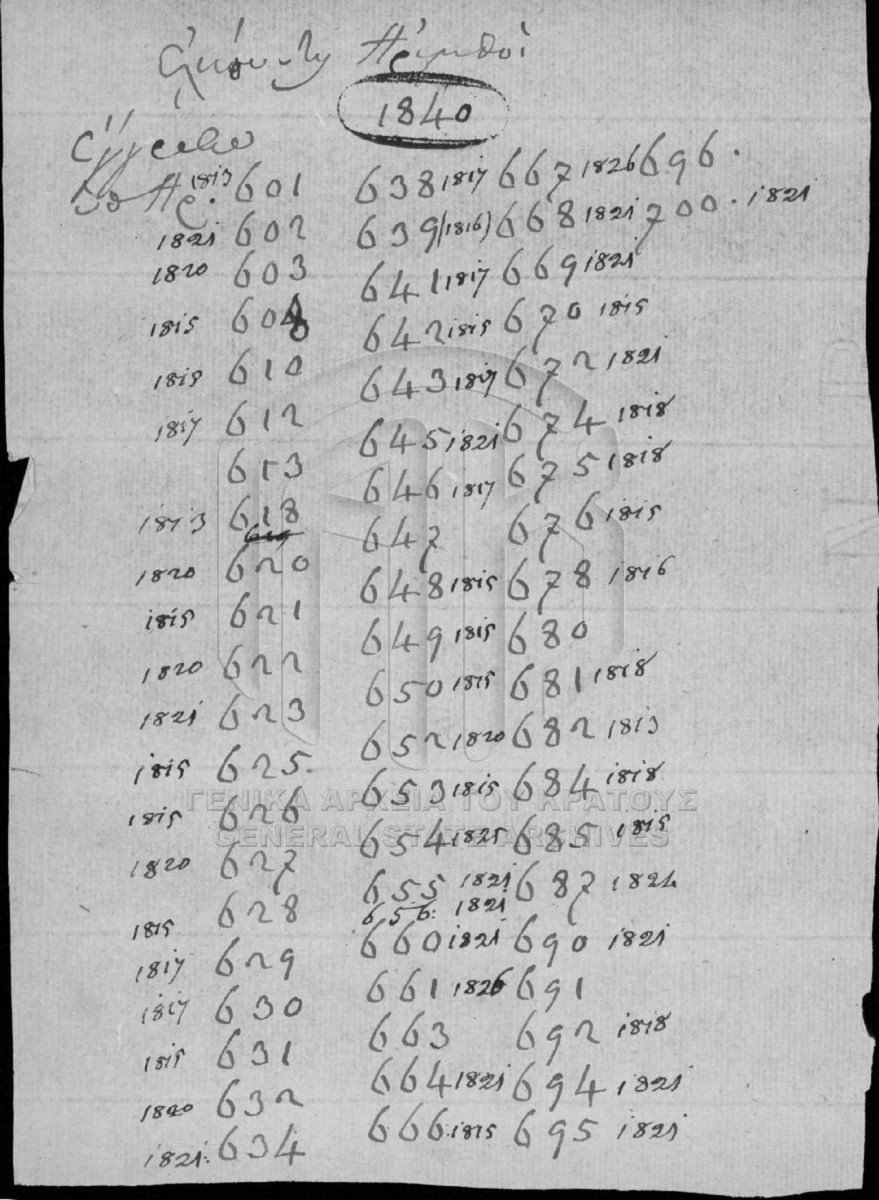 1840
1813 601 638 1817 667 1826 696.
1821 602 639 (1816) 668 1821 700. 1821
1820 603 641 1817 669 1821
1815 604 642 1815 670 1815
1815 610 643 1817 672 1821
1817 612 645 1821 674 1818
613 646 1817 675 1818
1813 618 647 676 1815
619
1820 620 648 1815 678 1816
1815 621 649 1815 680
1820 622 650 1815 681 1818
1821 623 652 1820 682 1813
1815 625. 653 1815 684 1818
ΓΕΝΙΚΑ ΑΡΧΕΙΑ ΤΟΥ ΚΡΑΤΟΥΣ
1815 626 654 1821 685 1815
GENERAL STATE ARCHIVES
1820 627 655 1821 687 1824
656: 1821
1815 628 660 1821 690 1821
1817 629 661 1826 691
1817 630 663 692 1818
1815 631 664 1821 694 1821
1820 632 666 1815 695 1821
1821: 634